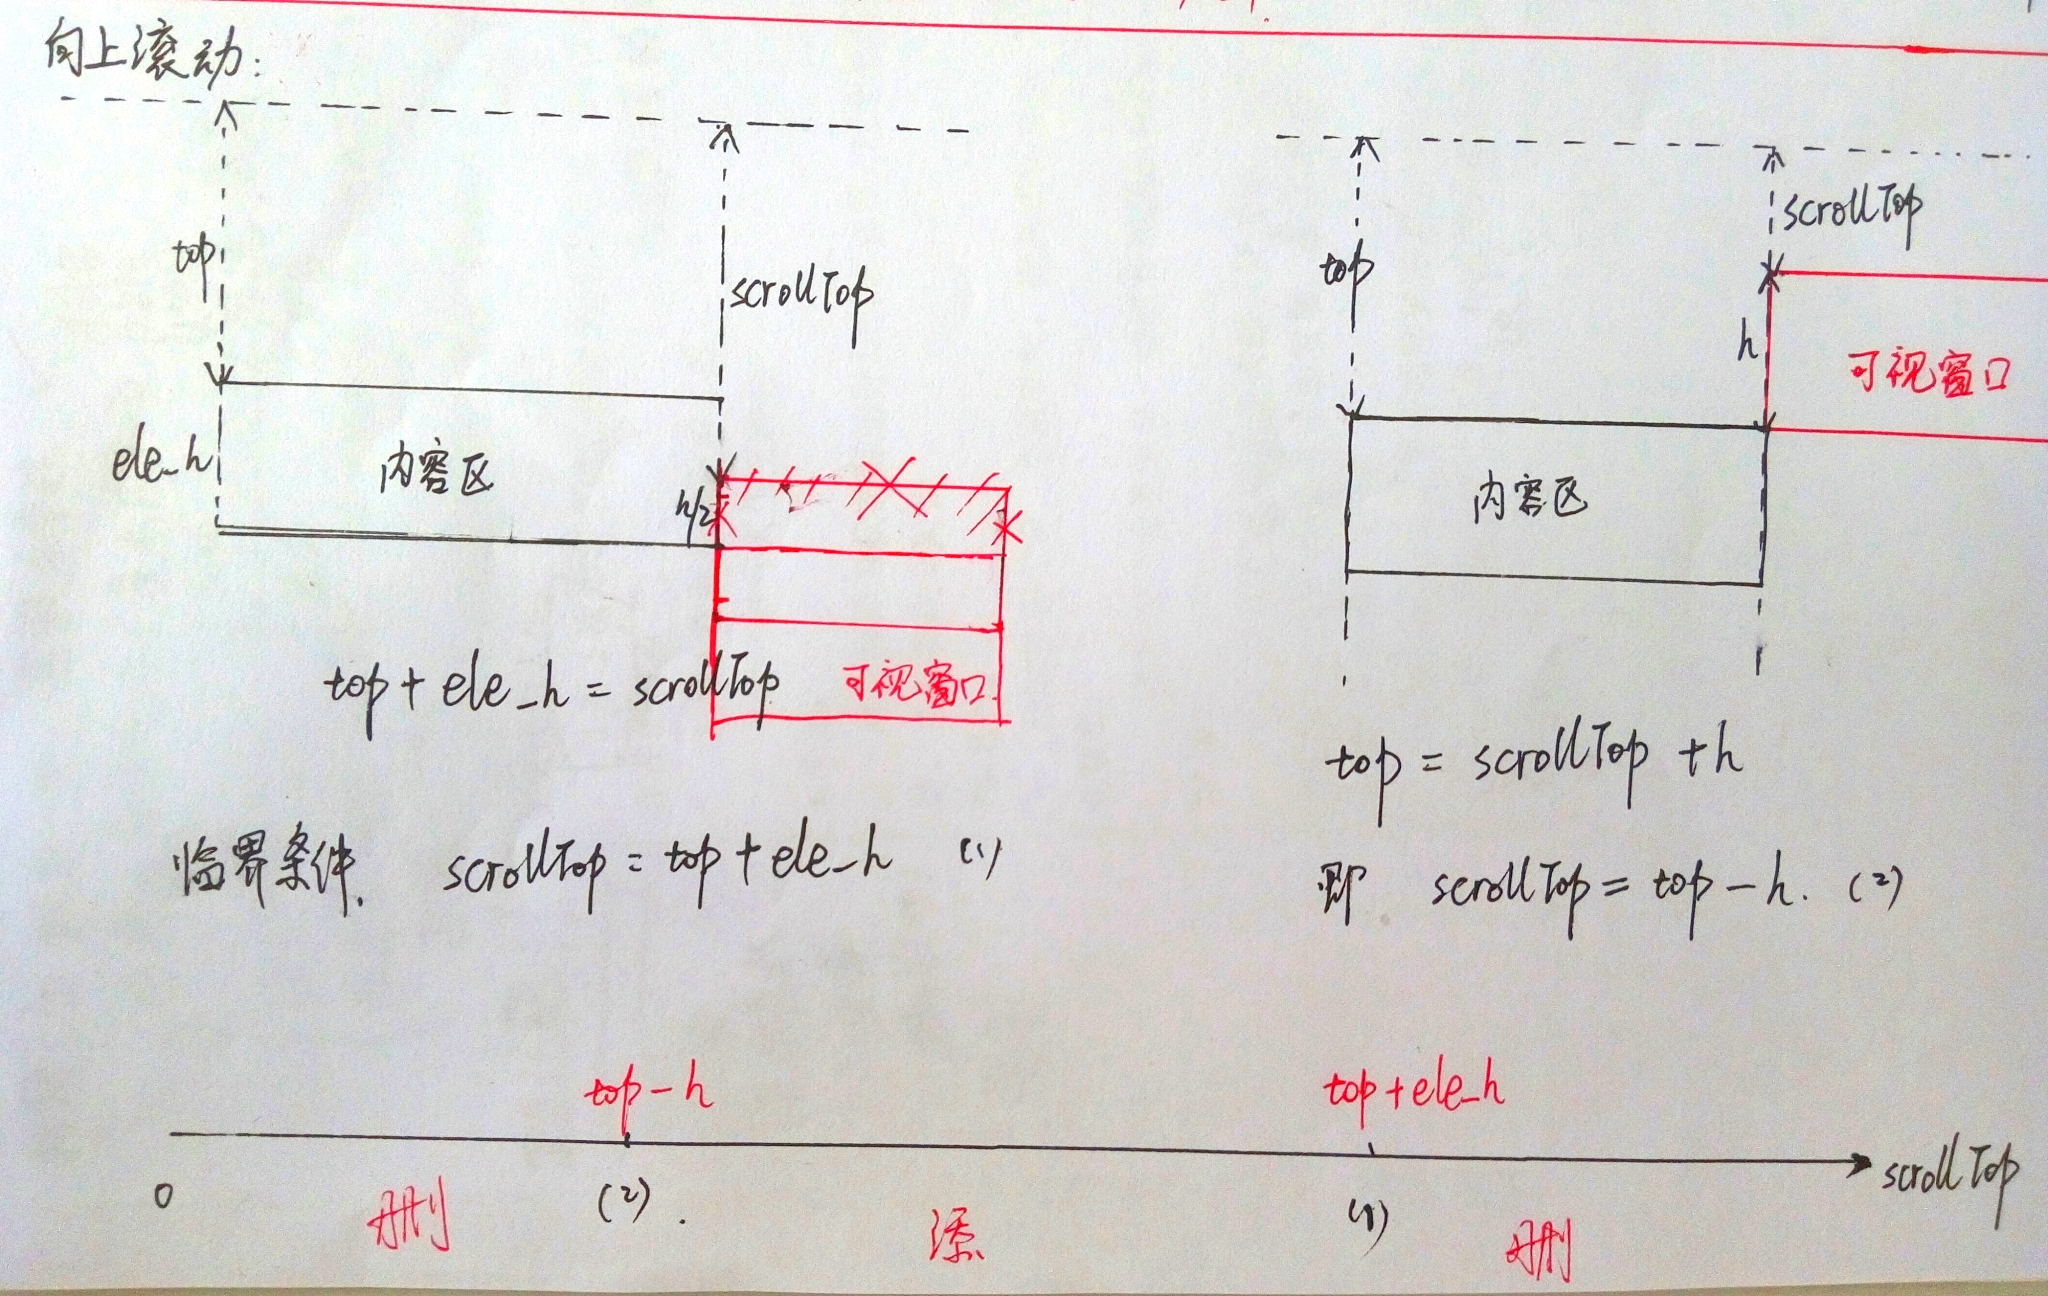 向上滚动:
top
scrollTop
ele_h
内容区
h/2
top + ele_h = scrollTop
可视窗口
临界条件. scrollTop = top + ele_h (1)
scrollTop
top
h
可视窗口
内容区
top = scrollTop + h
即 scrollTop = top - h. (2)
top - h
top + ele_h
scrollTop
0
删
(2).
添
(1)
删